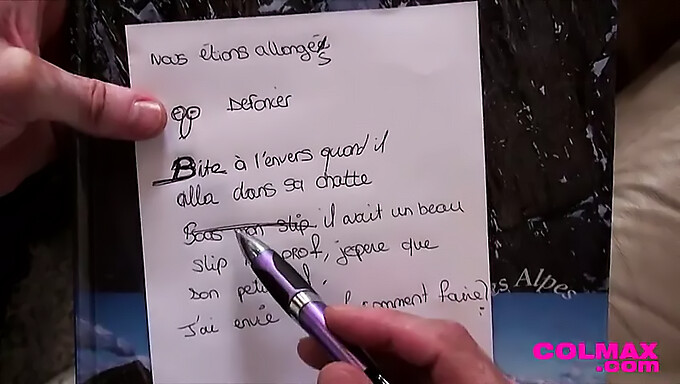 Nous étions allongés
Defoncer
Bite à l'envers quand il
alla dans sa chatte
Bous mon slip il avait un beau
slip prof, jepere que
son peti
J'ai envie comment faire?
es Alpes
COLMAX
.com